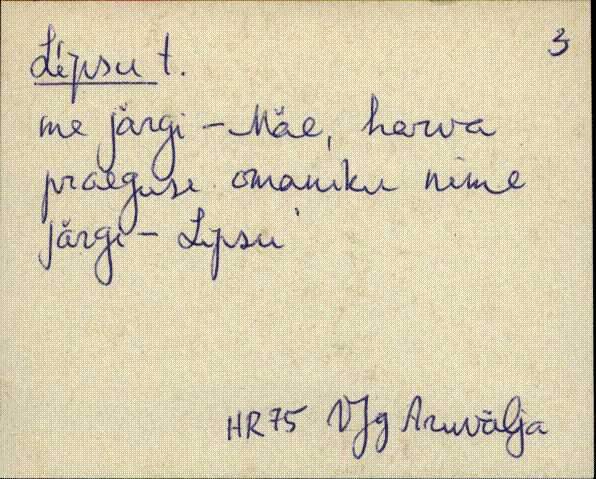 3
Lipsu t.
me järgi – Mäe, harva
praeguse omaniku nime
järgi – Lipsu
HR75 VJg Aruvälja